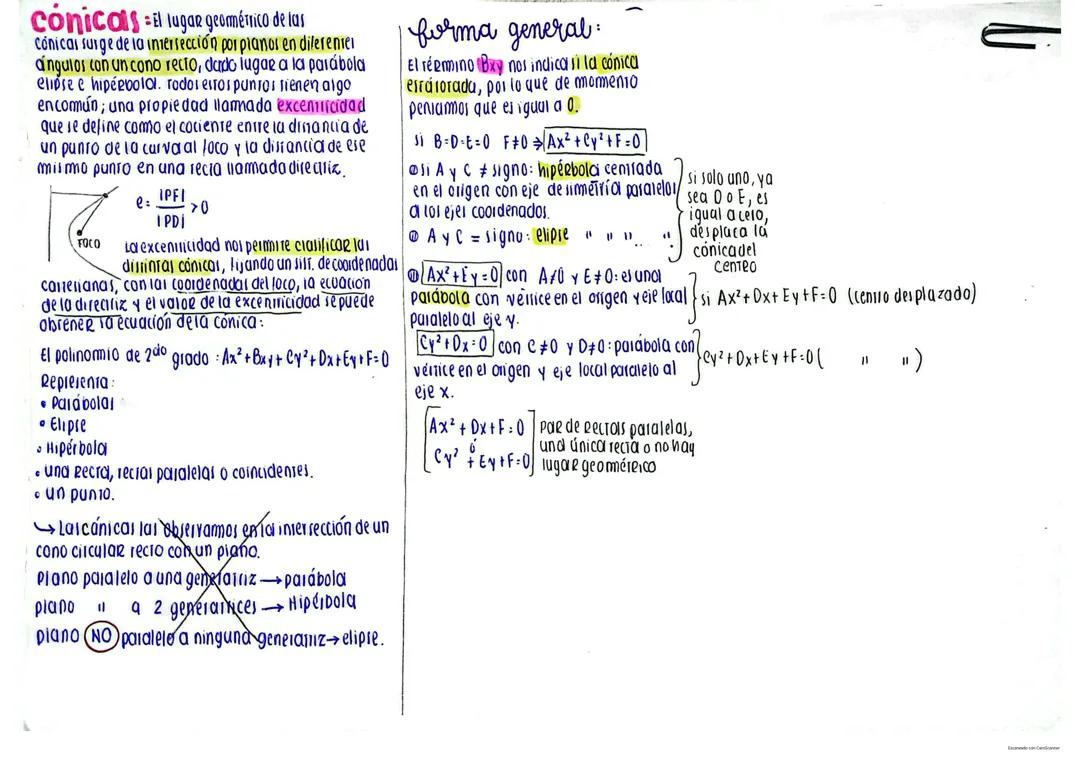 cónicas: El lugar geométrico de las
cónicas surge de la intersección por planos en diferentes
ángulos con un cono recto, dando lugar a la parábola
elipse e hipérbola. Todos estos puntos tienen algo
en común; una propiedad llamada excentricidad
que se define como el cociente entre la distancia de
un punto de la curva al foco y la distancia de ese
mismo punto en una recta llamada directriz.
e = |PF| / |PD| > 0
FOCO
La excentricidad nos permite clasificar las
distintas cónicas, fijando un sist. de coordenadas
cartesianas, con las coordenadas del foco, la ecuación
de la directriz y el valor de la excentricidad se puede
obtener la ecuación de la cónica:
El polinomio de 2do grado: Ax²+Bxy+Cy²+Dx+Ey+F=0
Representa:
• Parábolas
• Elipse
• Hipérbola
• una Recta, rectas paralelas o coincidentes.
• un punto.
↳ Las cónicas las observamos en la intersección de un
cono circular recto con un plano.
Plano paralelo a una generatriz → parábola
plano " a 2 generatrices → Hipérbola
plano NO paralelo a ninguna generatriz → elipse.
forma general:
El término Bxy nos indica si la cónica
está rotada, por lo que de momento
pensamos que es igual a 0.
si B=D=E=0 F≠0 ⇒ Ax²+Cy²+F=0
si A y C ≠ signo: hipérbola centrada
en el origen con eje de simetría paralelos
a los ejes coordenados.
A y C = signo: elipse " " " .. " .
si solo uno, ya
sea D o E, es
igual a cero,
desplaca la
cónica del
centro
Ax²+Ey=0 con A≠0 y E≠0: es una
parábola con vértice en el origen y eje local
paralelo al eje y.
si Ax²+Dx+Ey+F=0 (centro desplazado)
Cy²+Dx=0 con C≠0 y D≠0: parábola con
vértice en el origen y eje local paralelo al
eje x.
Cy²+Dx+Ey+F=0 ( " " )
Ax²+Dx+F=0
ó
Cy²+Ey+F=0
Par de Rectas paralelas,
una única recta o no hay
lugar geométrico
Escaneado con CamScanner